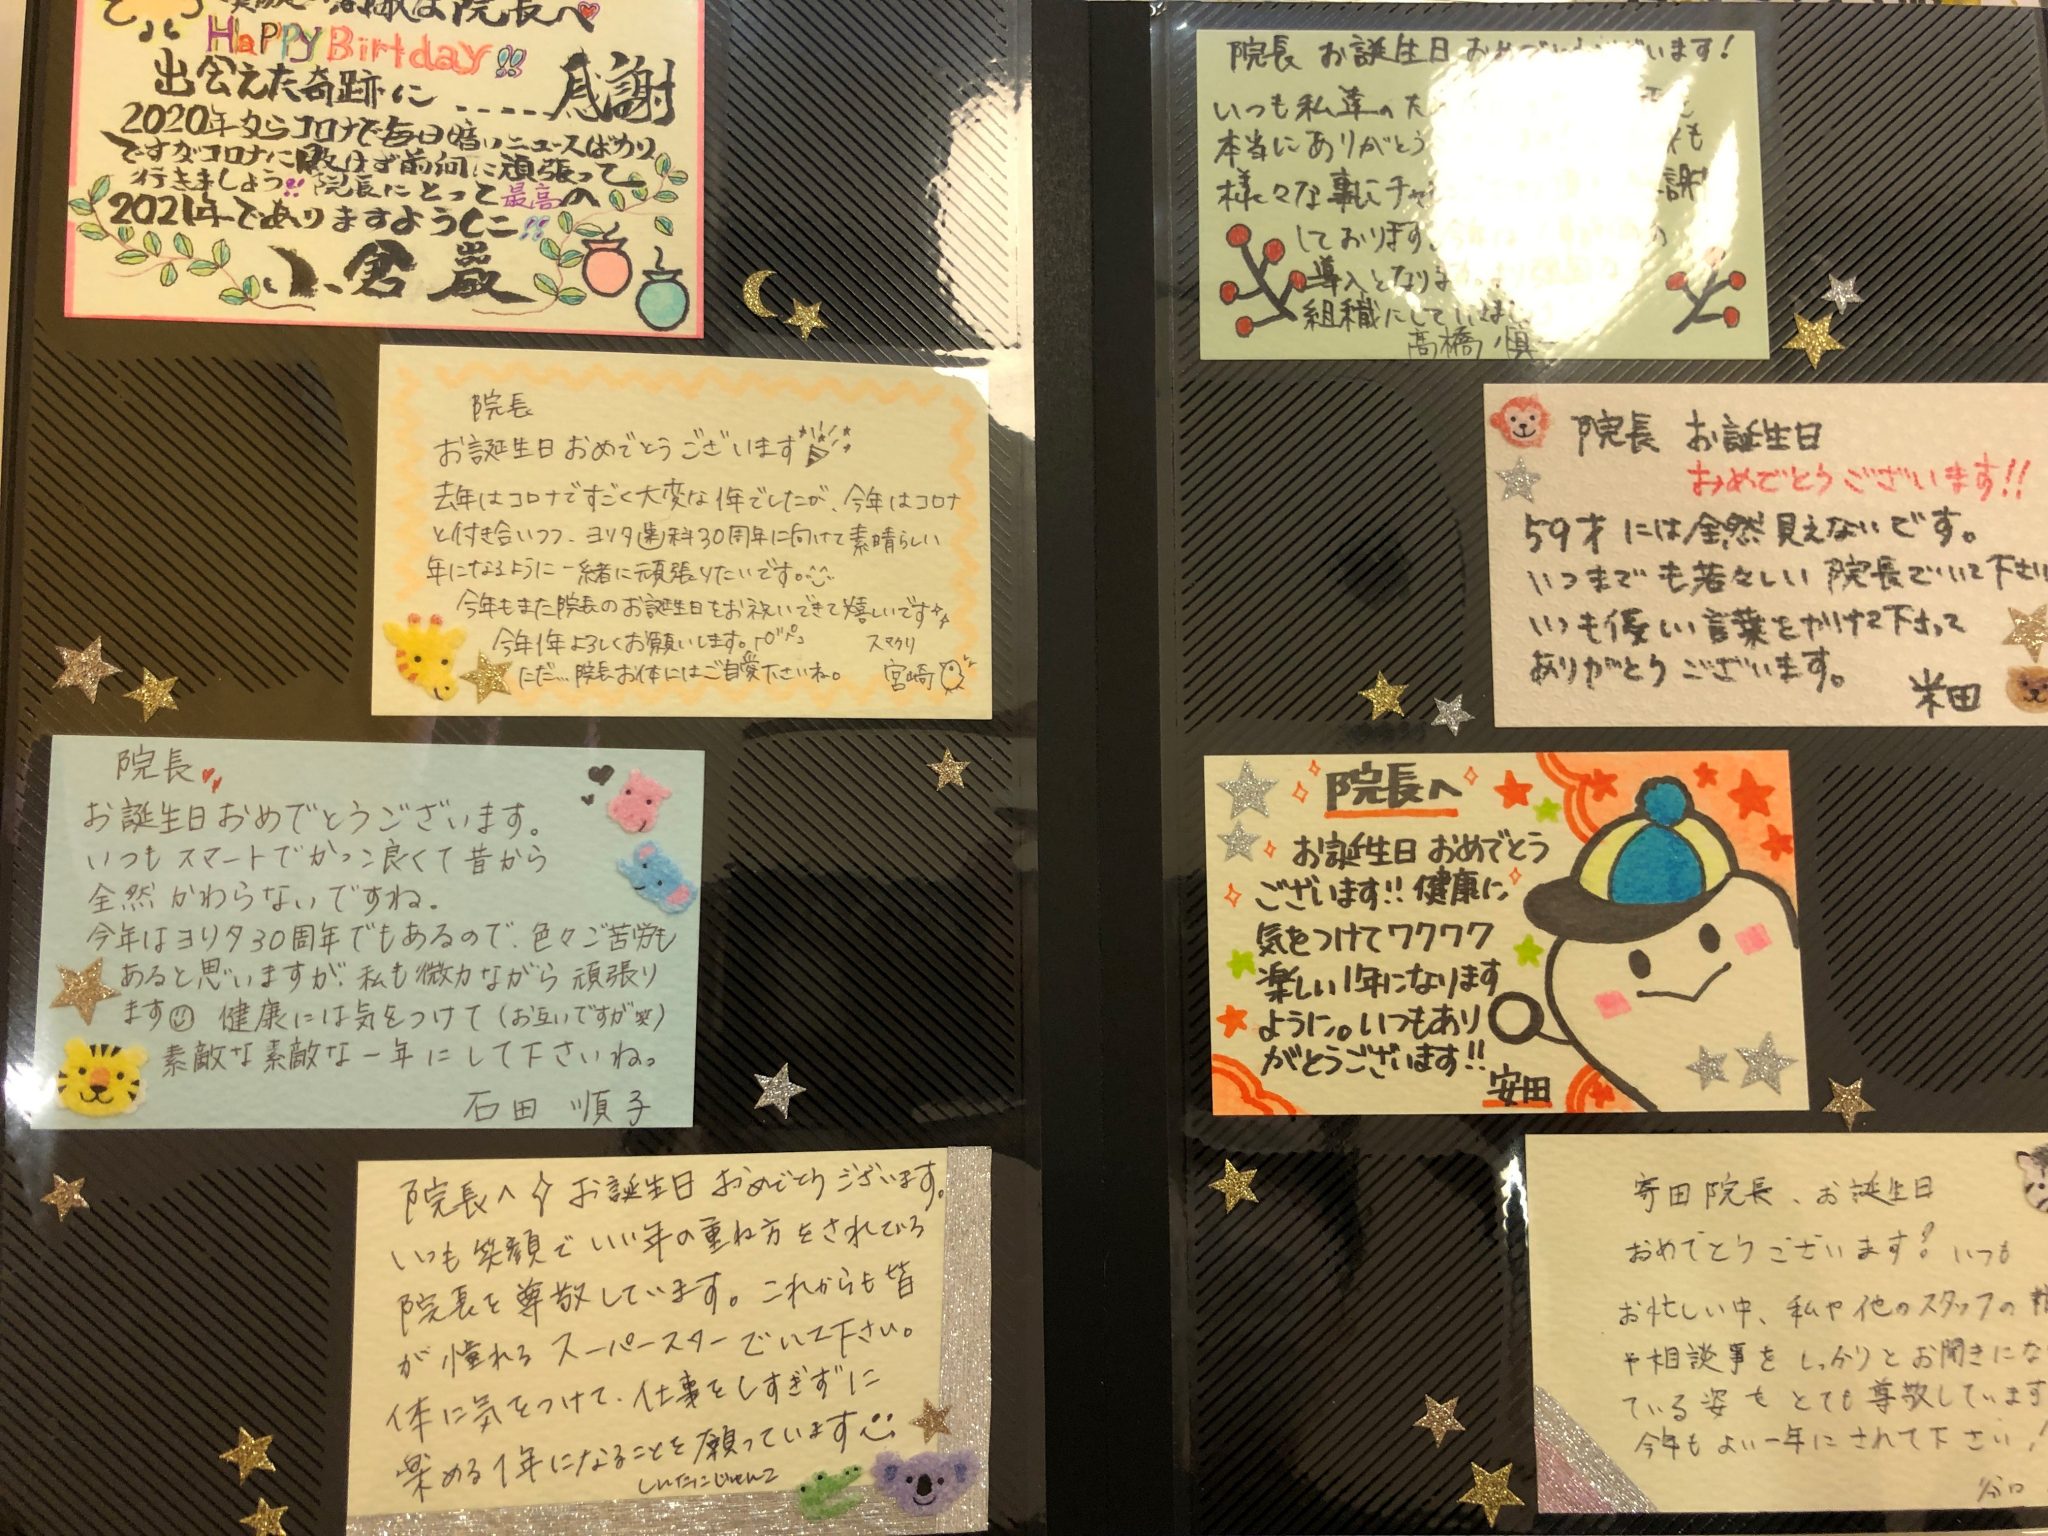 院長へ
Happy Birtday!!
出会えた奇跡に
....感謝
2020年からコロナで毎日暗いニュースばかり
ですがコロナに負けず前向に頑張って
行きましょう!!院長にとって最高の
2021年でありますように!!
小倉 巌
院長
お誕生日おめでとうございます
去年はコロナですごく大変な1年でしたが、今年はコロナ
と付き合いつつ、ヨリタ歯科30周年に向けて素晴らしい
年になるように一緒に頑張りたいです。
今年もまた院長のお誕生日をお祝いできて嬉しいです
今年1年よろしくお願いします。ペコペコ
スマクリ
ただ…院長お体にはご自愛下さいね。
宮崎
院長
お誕生日おめでとうございます。
いつもスマートでかっこ良くて昔から
全然かわらないですね。
今年はヨリタ30周年でもあるので、色々ご苦労も
あると思いますが、私も微力ながら頑張り
ます 健康には気をつけて(お互いですが笑)
素敵な素敵な一年にして下さいね。
石田 順子
院長へ お誕生日おめでとうございます。
いつも笑顔でいい年の重ね方をされてる
院長を尊敬しています。これからも皆
が憧れるスーパースターでいて下さい。
体に気をつけて、仕事をしすぎずに
楽める1年になることを願っています
院長 お誕生日 おめでとうございます!
いつも私達の
本当にありがとう
様々な事に
謝
しております。今年は
導入となります。
組織にしていきましょう
高橋 慎一
院長 お誕生日
おめでとうございます!!
59才には全然見えないです。
いつまでも若々しい院長でいて下さい
いつも優しい言葉をかけて下さって
ありがとうございます。
米田
院長へ
お誕生日おめでとう
ございます!!健康に
気をつけてワクワク
楽しい1年になります
ように。いつもあり
がとうございます!!
安田
寄田院長、お誕生日
おめでとうございます! いつも
お忙しい中、私や他のスタッフの
や相談事をしっかりとお聞きにな
ている姿をとても尊敬しています
今年もよい一年にされて下さい!
谷口